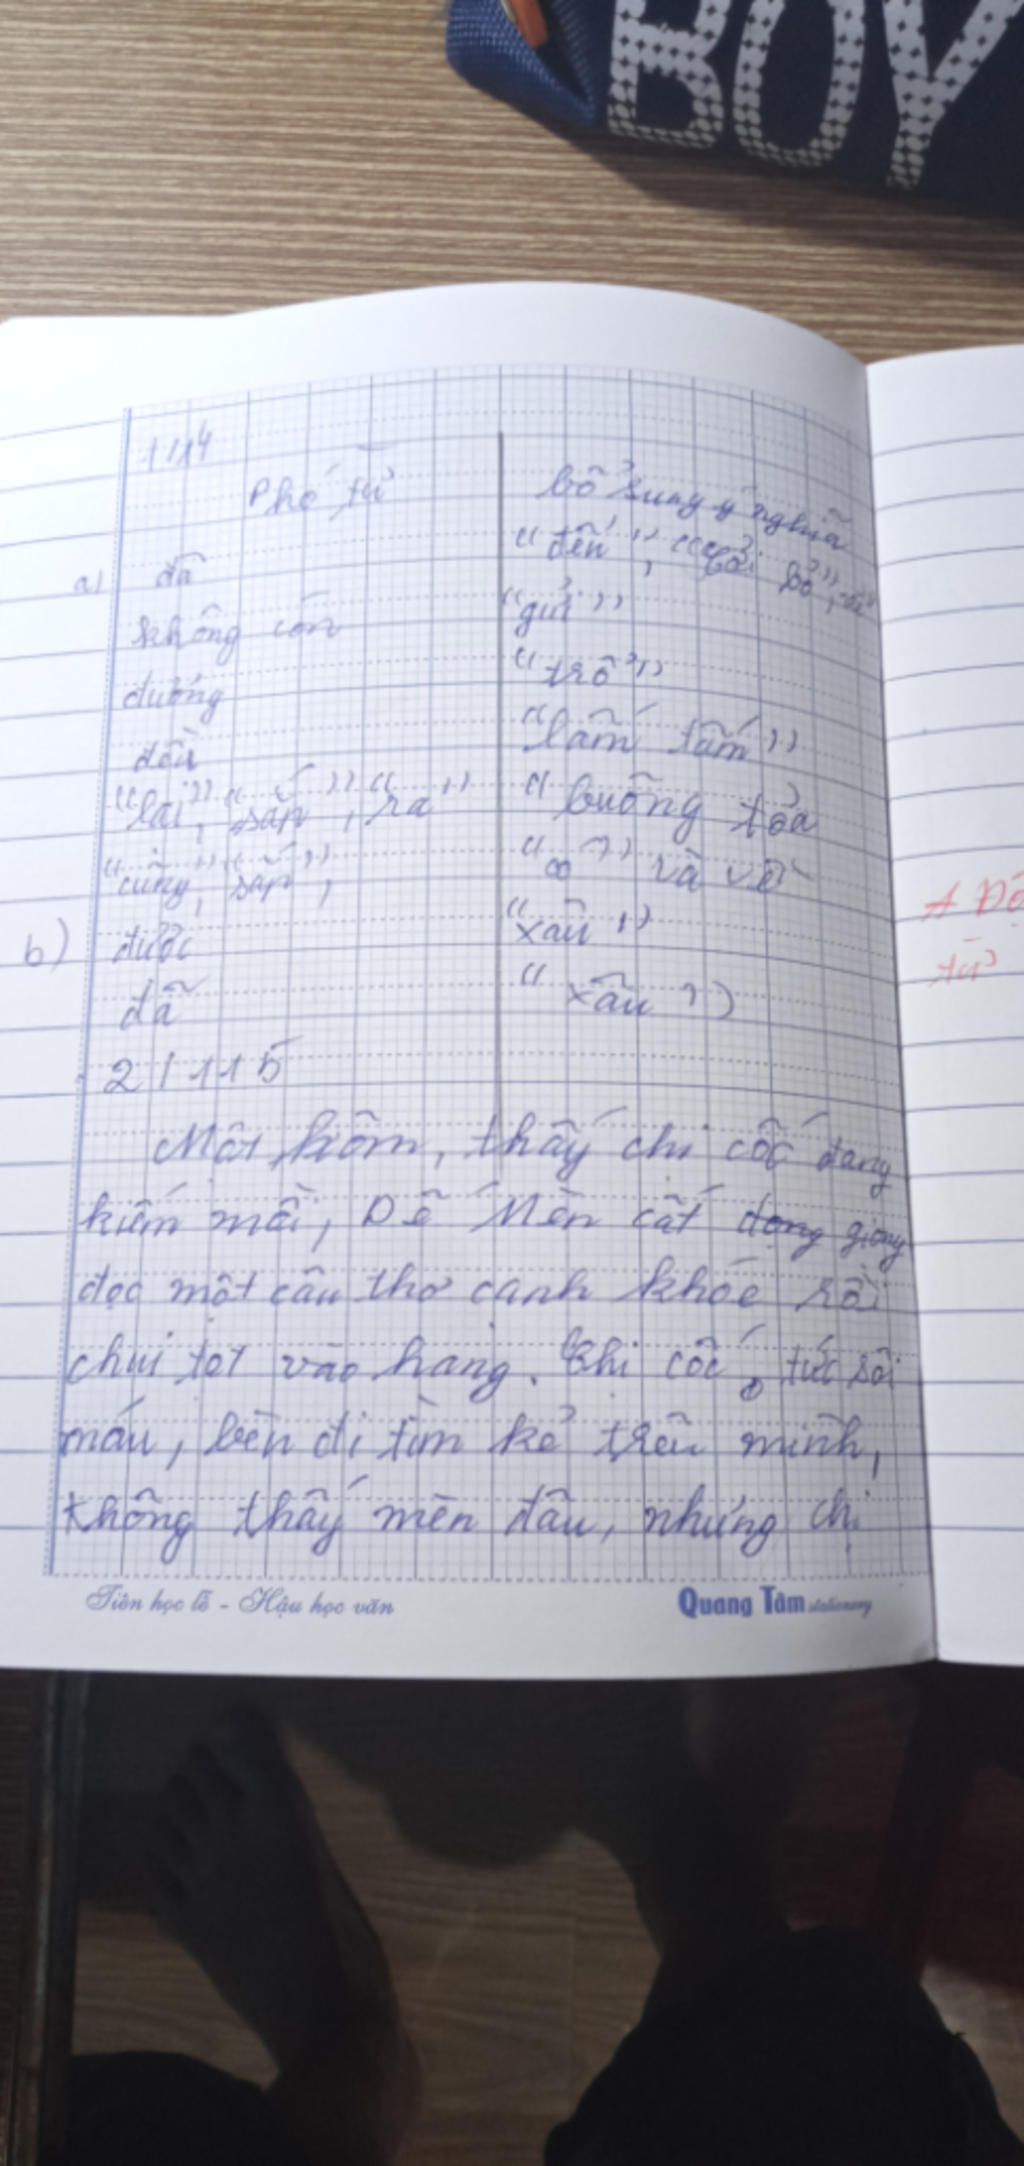 BOY
1/14
Phó từ
bổ sung ý nghĩa
a) đã
"đến", "cởi bỏ",
không còn
"gửi"
đương
"trổ"
đều
"lấm tấm"
"lại", "sắp", "ra"
"buông tỏa
"cũng", "sắp",
" và về
b) được
"xâu"
đã
"xâu"
2/115
Một hôm, thấy chị cốc đang
kiếm mồi, Dế Mèn cất dọng giọng
đọc một câu thơ cạnh khóe rồi
chui tọt vào hang. Chị cốc, tức sôi
máu, bèn đi tìm kẻ trêu mình,
không thấy mèn đâu, nhưng chị
Tiên học lễ - Hậu học văn
Quang Tâm stationery
A Độ
từ